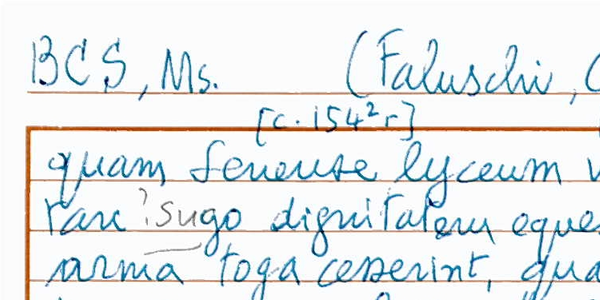 BCS, Ms. (Faluschi,
[c. 154²r]
quam Senense lyceum
tare ? Sugo dignitatem eque
arma toga cesserint, qua